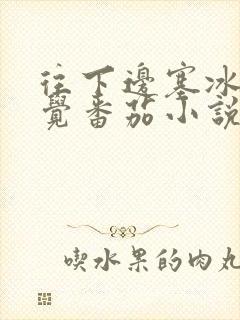 往下邊塞冰
覺番茄小說
喫水果的肉丸